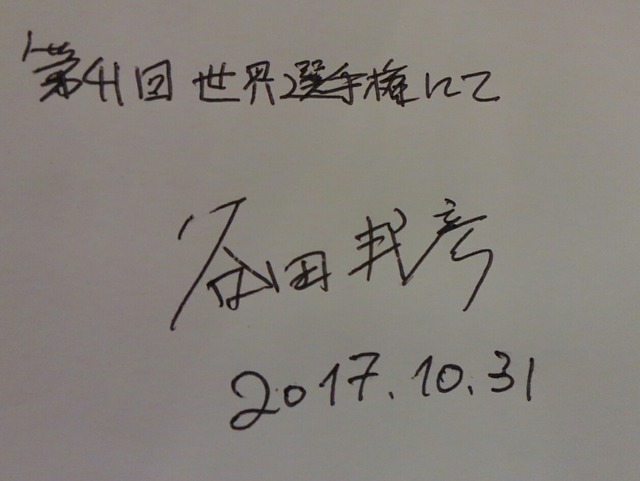 第41回 世界選手権にて
谷田邦彦
2017.10.31